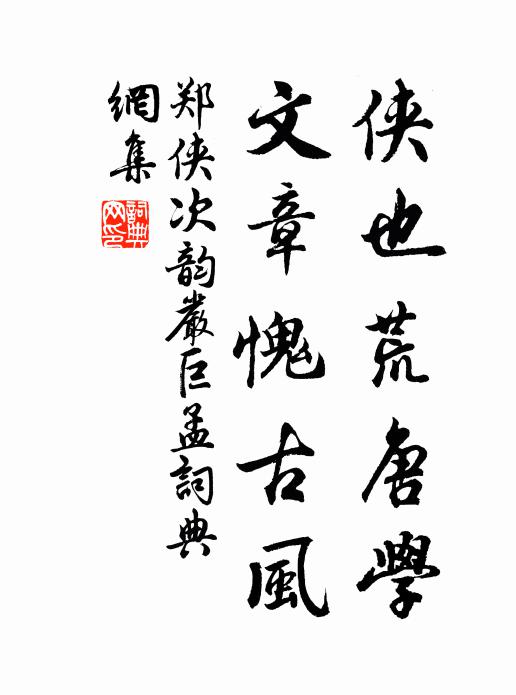 侠也荒唐學
文章愧古風
郑侠次韵嚴巨孟詞典
網集
詞典
网印